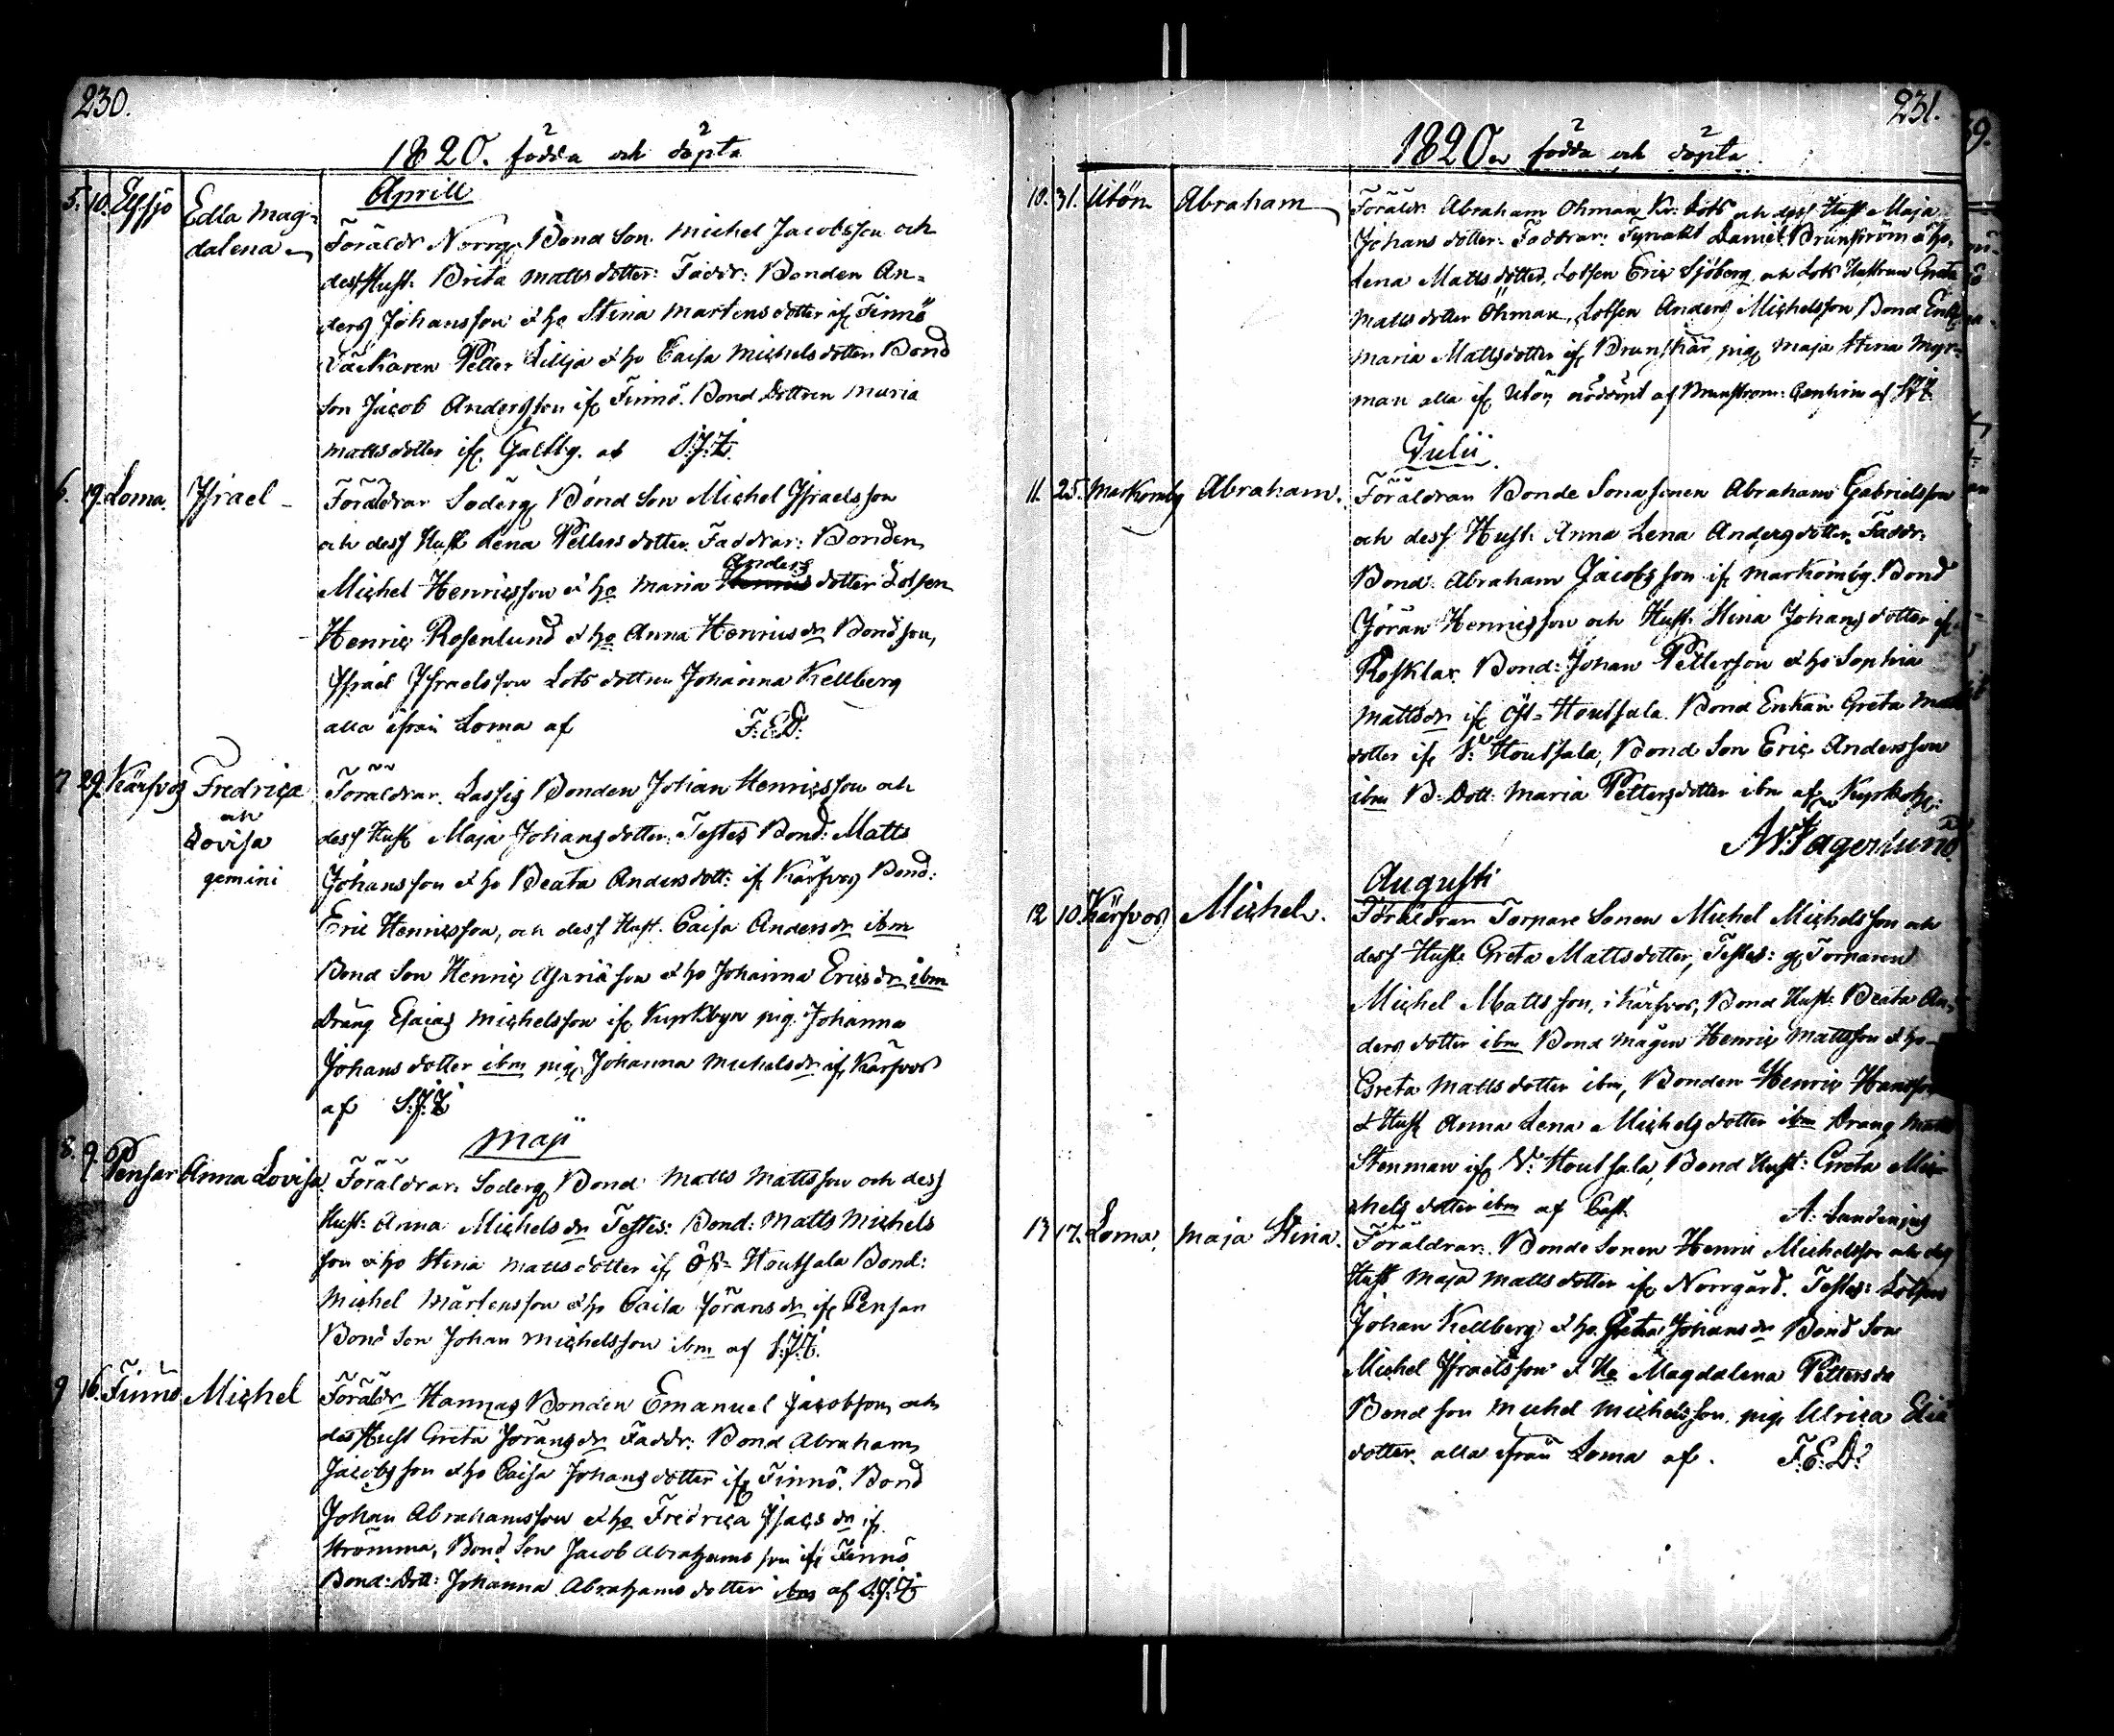 230.
1820. födda och döpta
Aprill
5. 10. Elfsjö Edla Mag-
dalena
Föräldr Norrg. Bond Son Michel Jacobsson och
dess Hust. Brita Mattsdotter: Faddr: Bonden An-
ders Johansson & ho Stina Martensdotter if. Finnö
Petter Lillja & ho Caisa Michelsdotter Bond
Son Jacob Andersson if. Finnö. Bond Dottren Maria
Mattsdotter if. Galtby. af S:J:Z.
6. 19. Loma. Israel
Föräldrar Söderg. Bond Son Michel Israelsson
och dess Hust Lena Pettersdotter. Faddrar: Bonden
Anders
Michel Henricsson & ho Maria dotter Lotsen
Henric Rosenlund & ho Anna Henricsdr Bondson,
Israel Israelsson Lots dottren Johanna Kellberg
alla ifrån Loma af F:E:D:
7 29. Kärfvos Fredrica
och
Lovisa
gemini
Föräldrar. Lassis Bonden Johan Henricsson och
dess Hust Maja Johansdotter. Testes Bond: Matts
Johansson & ho Beata Andersdott: if Kärfvos Bond:
Eric Henricsson, och dess Hust. Caisa Andersdr ibm
Bond Son Henric Asariæson & ho Johanna Ericsdr ibm
Dräng Esaias Michelsson if. Kyrkbyn pig. Johanna
Johansdotter ibm pig. Johanna Michelsdr if. Kärfvos
af S:J:Z
Maji
8. 9. Pensar Anna Lovisa.
Föräldrar. Söderg. Bond Matts Mattsson och dess
Hust: Anna Michelsdr Testes: Bond: Matts Michels
son & ho Stina Mattsdotter if Öst-Houtsala Bond:
Michel Mårtensson & ho Caisa Jöransdr if Pensar
Bond Son Johan Michelsson ibm af S:J:Z.
9 16. Finnö Michel
Föräldr Hannas Bonden Emanuel Jacobson och
dess Hust Greta Jöransdr Faddr: Bond Abraham
Jacobsson & ho Caisa Johansdotter if Finnö. Bond
Johan Abrahamsson & ho Fredrica Isacsdr if.
Strömma, Bond Son Jacob Abrahamsson if. Finnö
Bond: Dott: Johanna Abrahamsdotter ibm af S:J:Z
231.
1820 födda och döpta
10. 31. Utön Abraham
Föräldr. Abraham Öhman Kr: Lots och dess Hust Maja
Johansdotter. Faddrar: Daniel Brunström & ho.
Lena Mattsdotter, Lotsen Eric Sjöberg, och Lots Hustrun Greta
Mattsdotter Öhman, Lotsen Anders Michelsson Bond Enk
Maria Mattsdotter if. Brunskär, pig. Maja Stina Myr-
man alla if Utön nöddöpt af Brunström: af S:J:Z
Julii
11. 25. Markomby Abraham.
Föräldrar Bonde Sonasonen Abraham Gabrielsson
och dess Hust: Anna Lena Andersdotter. Faddr:
Bond. Abraham Jacobsson if Markomby. Bond
Jöran Henricsson och Hust. Stina Johansdotter if
Rosklax Bond: Johan Petterson & ho Sophia
Mattsdr if Öst-Houtsala. Bond Enkan Greta Matts
dotter if V: Houtsala, Bond Son Eric Andersson
ibm B: Dott: Maria Pettersdotter ibm af Kyrkoh:
Fagerlund
Augusti
12 10. Kärfvos Michel.
Föräldrar Torpare Sonen Michel Michelsson och
dess Hust: Greta Mattsdotter, Testes: g. Torparen
Michel Mattsson, i Kärfvos, Bond Hust: Beata An-
ders dotter ibm Bond Mågen Henric Mattsson & ho
Greta Mattsdotter ibm, Bonden Henric Hansson
& Hust Anna Lena Michelsdotter ibm Dräng Matts
Stenman if V: Houtsala, Bond Hust: Greta Mi-
chels dotter ibm af Past. A:
13 17. Loma. Maja Stina.
Föräldrar. Bonde Sonen Henric Michelsson och dess
Hust Maja Mattsdotter if Norrgård. Testes: Lotsen
Johan Kellberg & ho Greta Johansdr Bond Son
Michel Israelsson & Ho Magdalena Pettersdr
Bond son Michel Michelsson. pig. Ulrica Elis
dotter. alla ifrån Loma af. F:E:D: